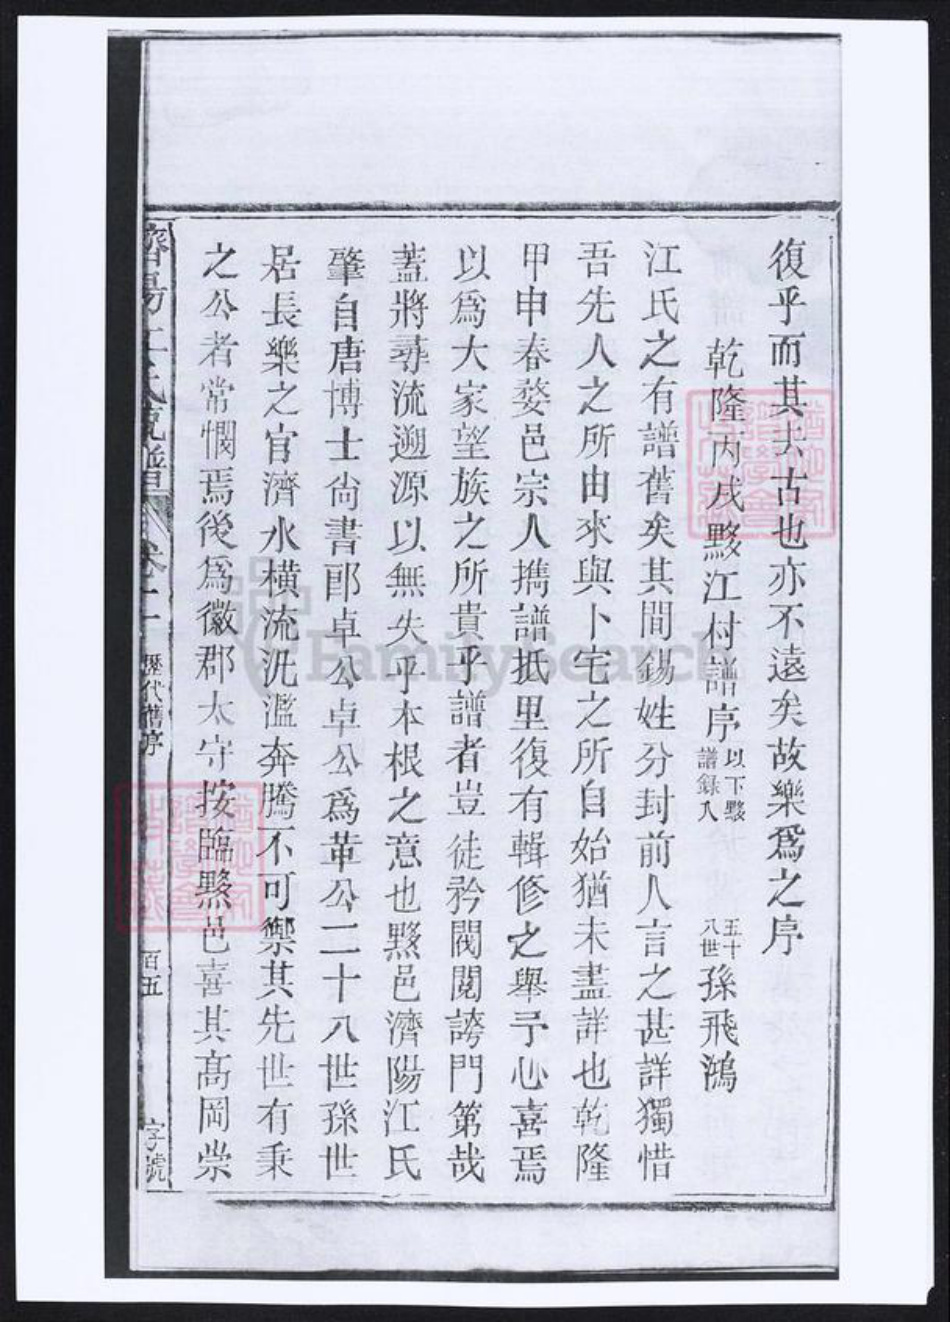 復乎而其去古也亦不遠矣故樂爲之序
乾隆丙戌黟江付譜序 以下黟譜錄入 五十八世孫飛鴻
江氏之有譜舊矣其間錫姓分封前人言之甚詳獨惜
吾先人之所由來與卜宅之所自始猶未盡詳也乾隆
甲申春婺邑宗人携譜抵里復有輯修之舉予心喜焉
以爲大家望族之所貴乎譜者豈徒矜閥閱誇門第哉
蓋將尋流遡源以無失乎本根之意也黟邑濟陽江氏
肇自唐博士尙書郎卓公卓公爲革公二十八世孫世
居長樂之官濟水橫流汎濫奔騰不可禦其先世有秉
之公者常憫焉後爲徽郡太守按臨黟邑喜其高岡崇
濟陽江氏統譜 卷十一 歷代舊序 百五 字號
FamilySearch